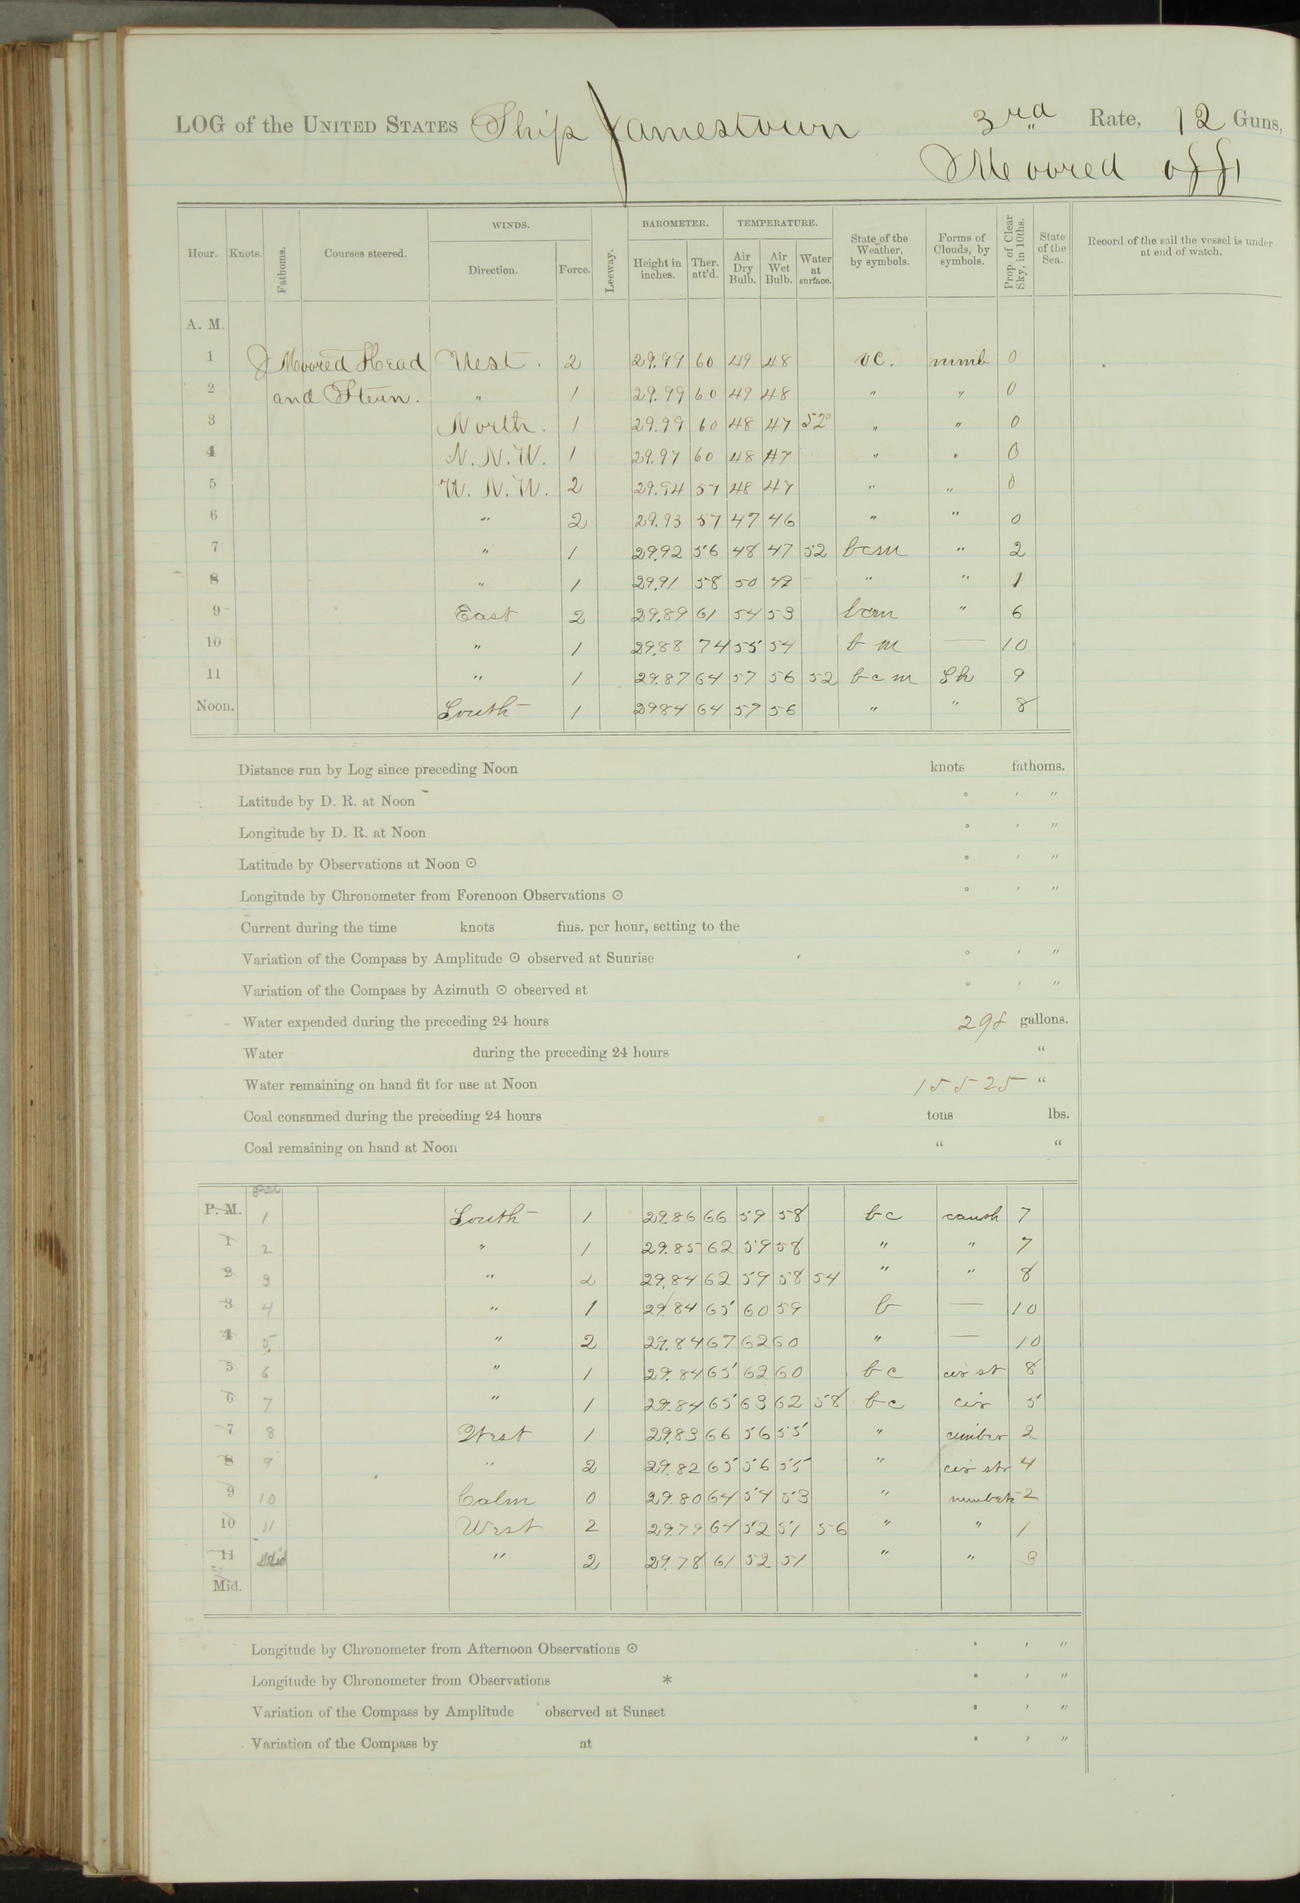 LOG of the UNITED STATES Ship Jamestown 3rd Rate, 12 Guns,
Moored off
Hour. Knots. Fathoms. Courses steered. WINDS. Direction. Force. Leeway. BAROMETER. Height in inches. Ther. att'd. TEMPERATURE. Air Dry Bulb. Air Wet Bulb. Water at surface. State of the Weather, by symbols. Forms of Clouds, by symbols. Prop. of Clear Sky, in 10ths. State of the Sea. Record of the sail the vessel is under at end of watch.
A. M.
1 Moored Head West. 2 29.99 60 49 48 oc. nimb 0
2 and Stern. " 1 29.99 60 49 48 " " 0
3 North. 1 29.99 60 48 47 52° " " 0
4 N. N. W. 1 29.97 60 48 47 " " 0
5 W. N. W. 2 29.94 57 48 47 " " 0
6 " 2 29.93 57 47 46 " " 0
7 " 1 29.92 56 48 47 52 bcm " 2
8 " 1 29.91 58 50 49 " " 1
9 East 2 29.89 61 54 53 bcm " 6
10 " 1 29.88 74 55 54 b m — 10
11 " 1 29.87 64 57 56 52 b c m 9
Noon. South 1 29 84 64 57 56 " " 8
Distance run by Log since preceding Noon knots fathoms.
Latitude by D. R. at Noon ° ' "
Longitude by D. R. at Noon ° ' "
Latitude by Observations at Noon ⊙ ° ' "
Longitude by Chronometer from Forenoon Observations ⊙ ° ' "
Current during the time knots fms. per hour, setting to the
Variation of the Compass by Amplitude ⊙ observed at Sunrise ° ' "
Variation of the Compass by Azimuth ⊙ observed at ° ' "
Water expended during the preceding 24 hours 298 gallons.
Water during the preceding 24 hours "
Water remaining on hand fit for use at Noon 15525 "
Coal consumed during the preceding 24 hours tons lbs.
Coal remaining on hand at Noon " "
P. M. 1 South 1 29.86 66 59 58 bc 7
1 2 " 1 29.85 62 59 58 " " 7
2 3 " 2 29.84 62 59 58 54 " " 8
3 4 " 1 29.84 65 60 59 b — 10
4 5 " 2 29.84 67 62 60 " — 10
5 6 " 1 29.84 65 62 60 bc cir st 8
6 7 " 1 29.84 65 63 62 58 bc cir 5
7 8 West 1 29.83 66 56 55 " 2
8 9 " 2 29.82 65 56 55 " cir str 4
9 10 Calm 0 29.80 64 54 53 " 2
10 11 West 2 29.79 64 52 51 56 " " 1
11 Mid " 2 29.78 61 52 51 " " 3
Mid.
Longitude by Chronometer from Afternoon Observations ⊙ ° ' "
Longitude by Chronometer from Observations * ° ' "
Variation of the Compass by Amplitude observed at Sunset ° ' "
Variation of the Compass by at ° ' "